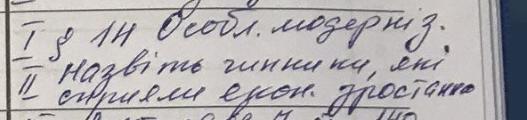 I § 14 Особл. модерніз.
II Назвіть чинники, які
сприяли екон. зростанню